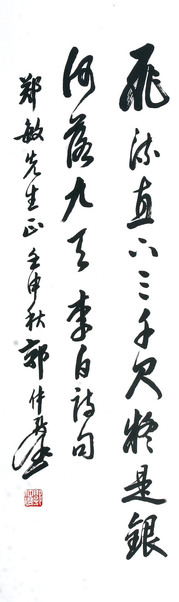 飛流直下三千尺疑是銀
河落九天李白詩句
鄭敏先生正壬申秋郭仲選